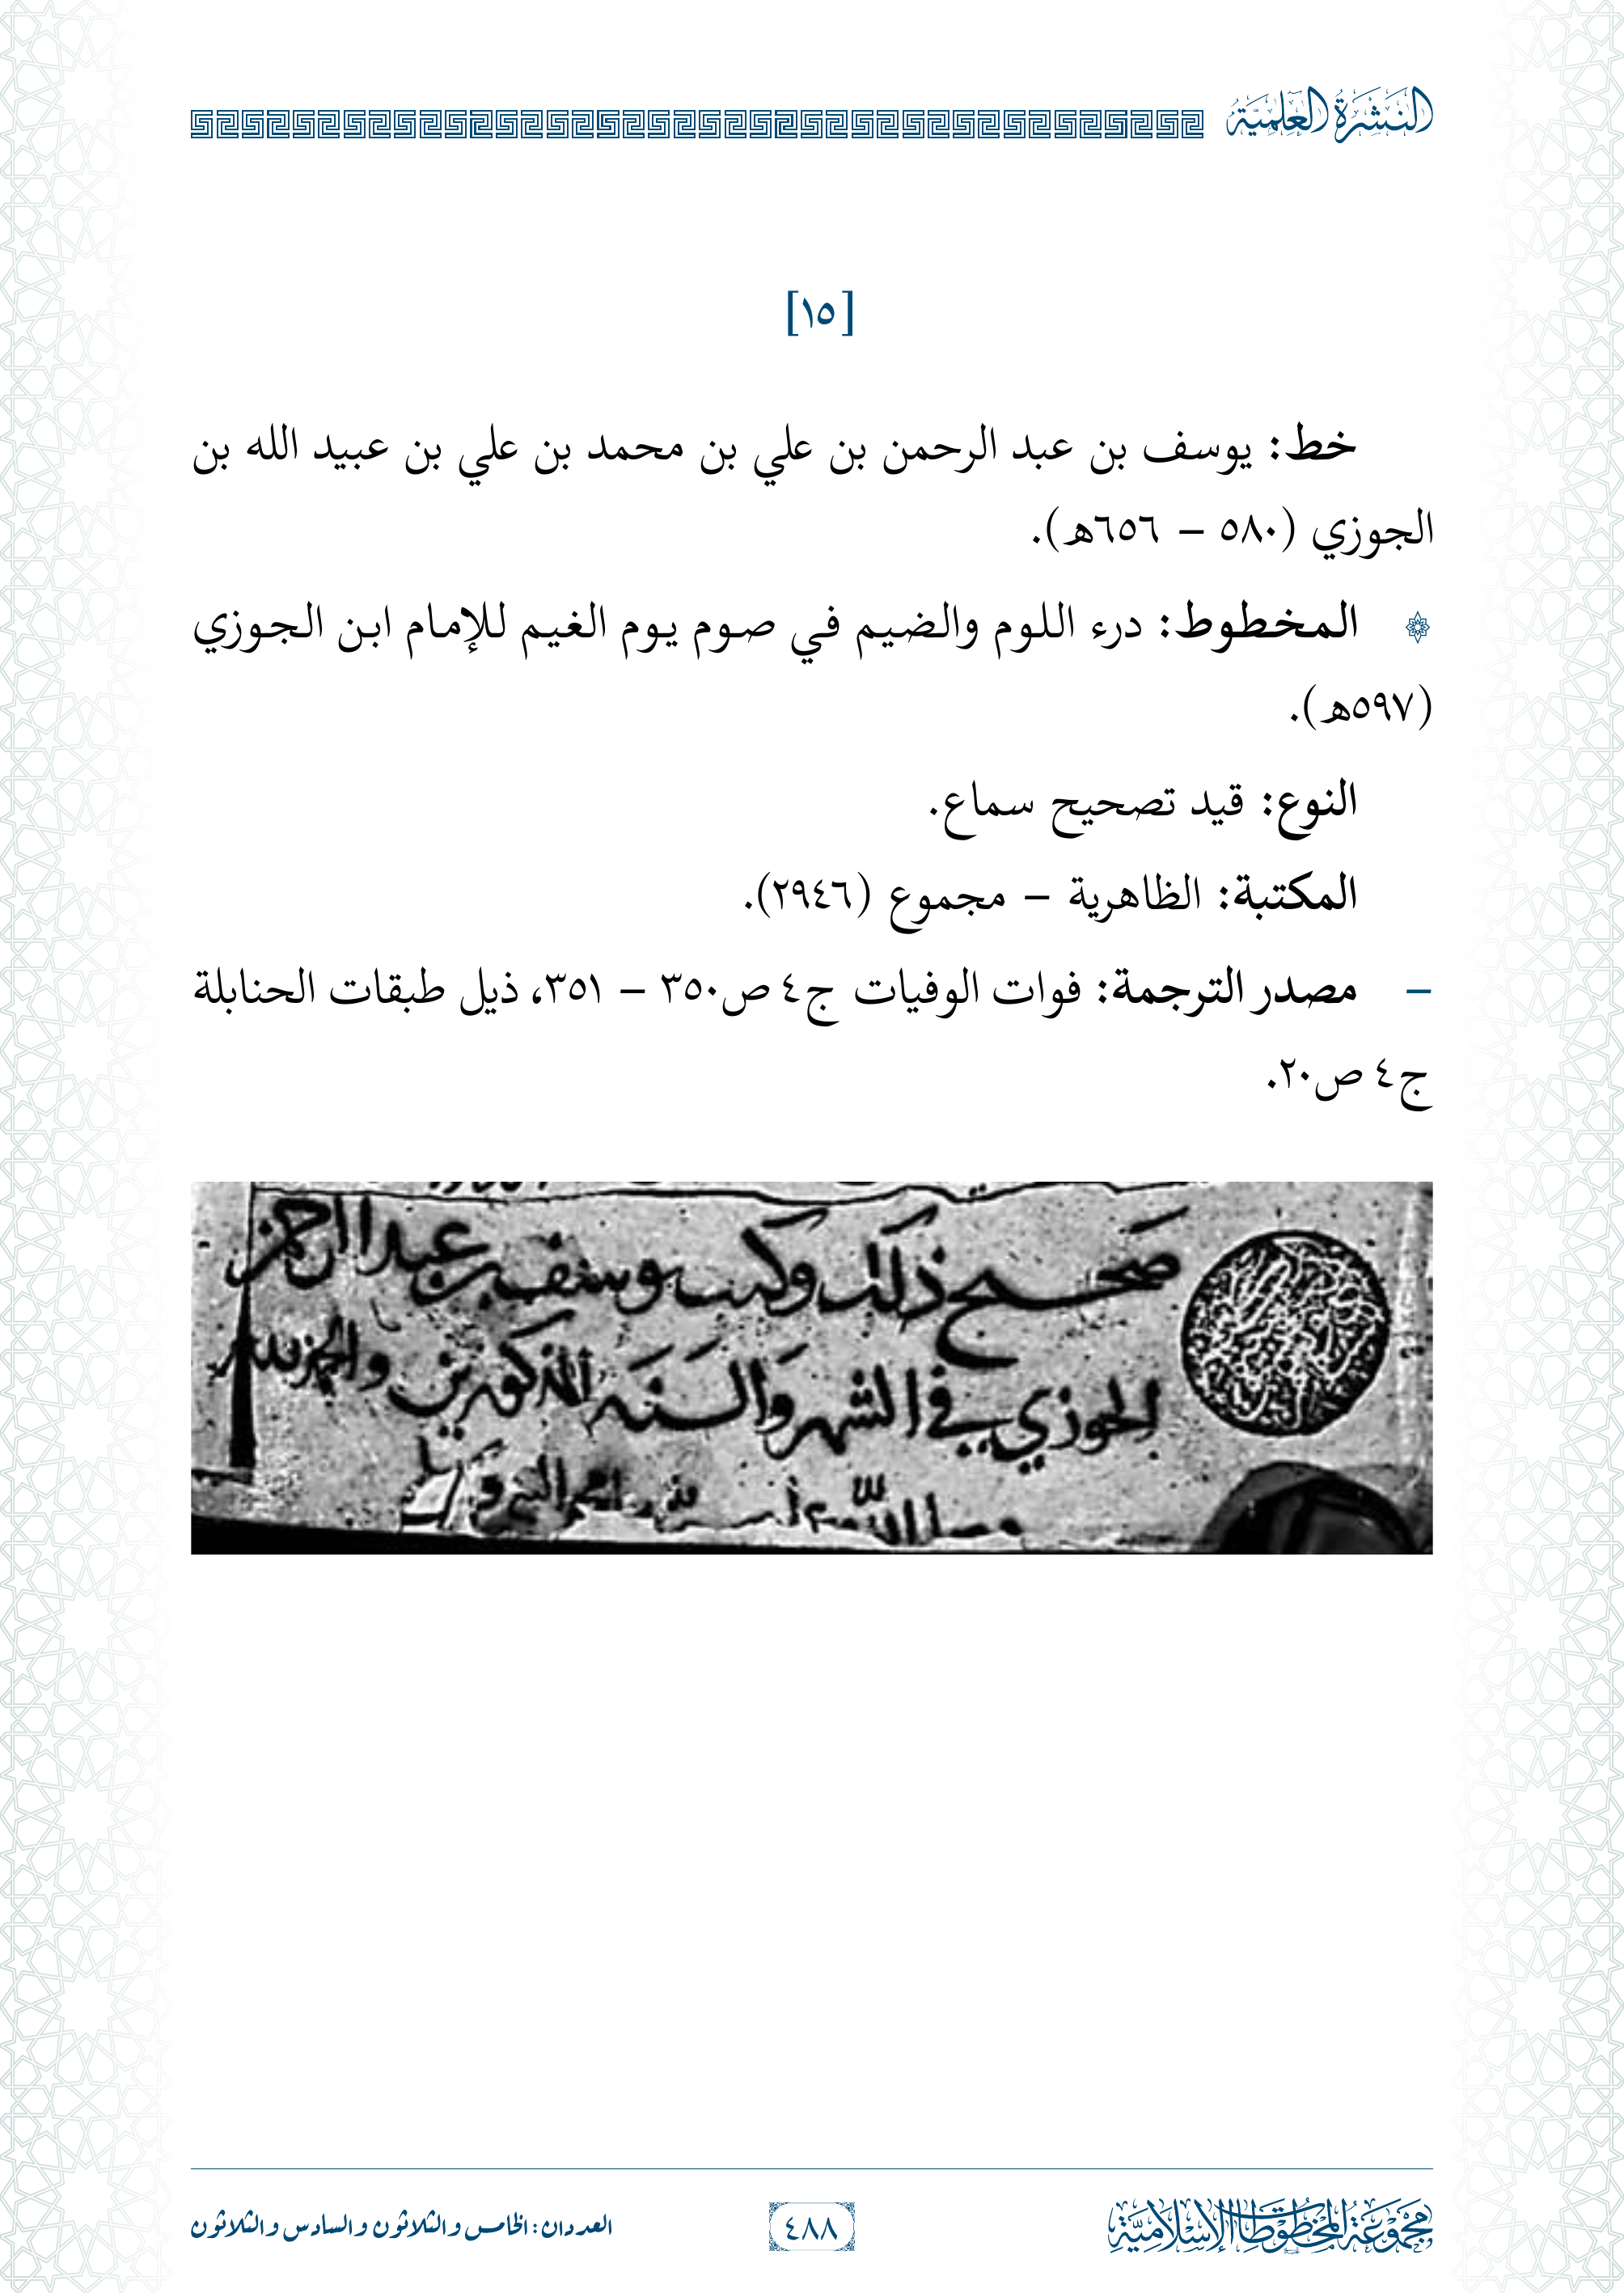 النشرة العلمية
[١٥]
خط: يوسف بن عبد الرحمن بن علي بن محمد بن علي بن عبيد الله بن
الجوزي (٥٨٠ – ٦٥٦هـ).
المخطوط: درء اللوم والضيم في صوم يوم الغيم للإمام ابن الجوزي
(٥٩٧هـ).
النوع: قيد تصحيح سماع.
المكتبة: الظاهرية – مجموع (٢٩٤٦).
– مصدر الترجمة: فوات الوفيات ج٤ ص٣٥٠ – ٣٥١، ذيل طبقات الحنابلة
ج٤ ص٢٠.
صحيح ذلك وكتب يوسف بن عبد الرحمن
الجوزي في الشهر والسنة المذكورين والحمد لله
مجموعة المخطوطات الإسلامية
٤٨٨
العددان: الخامس والثلاثون والسادس والثلاثون